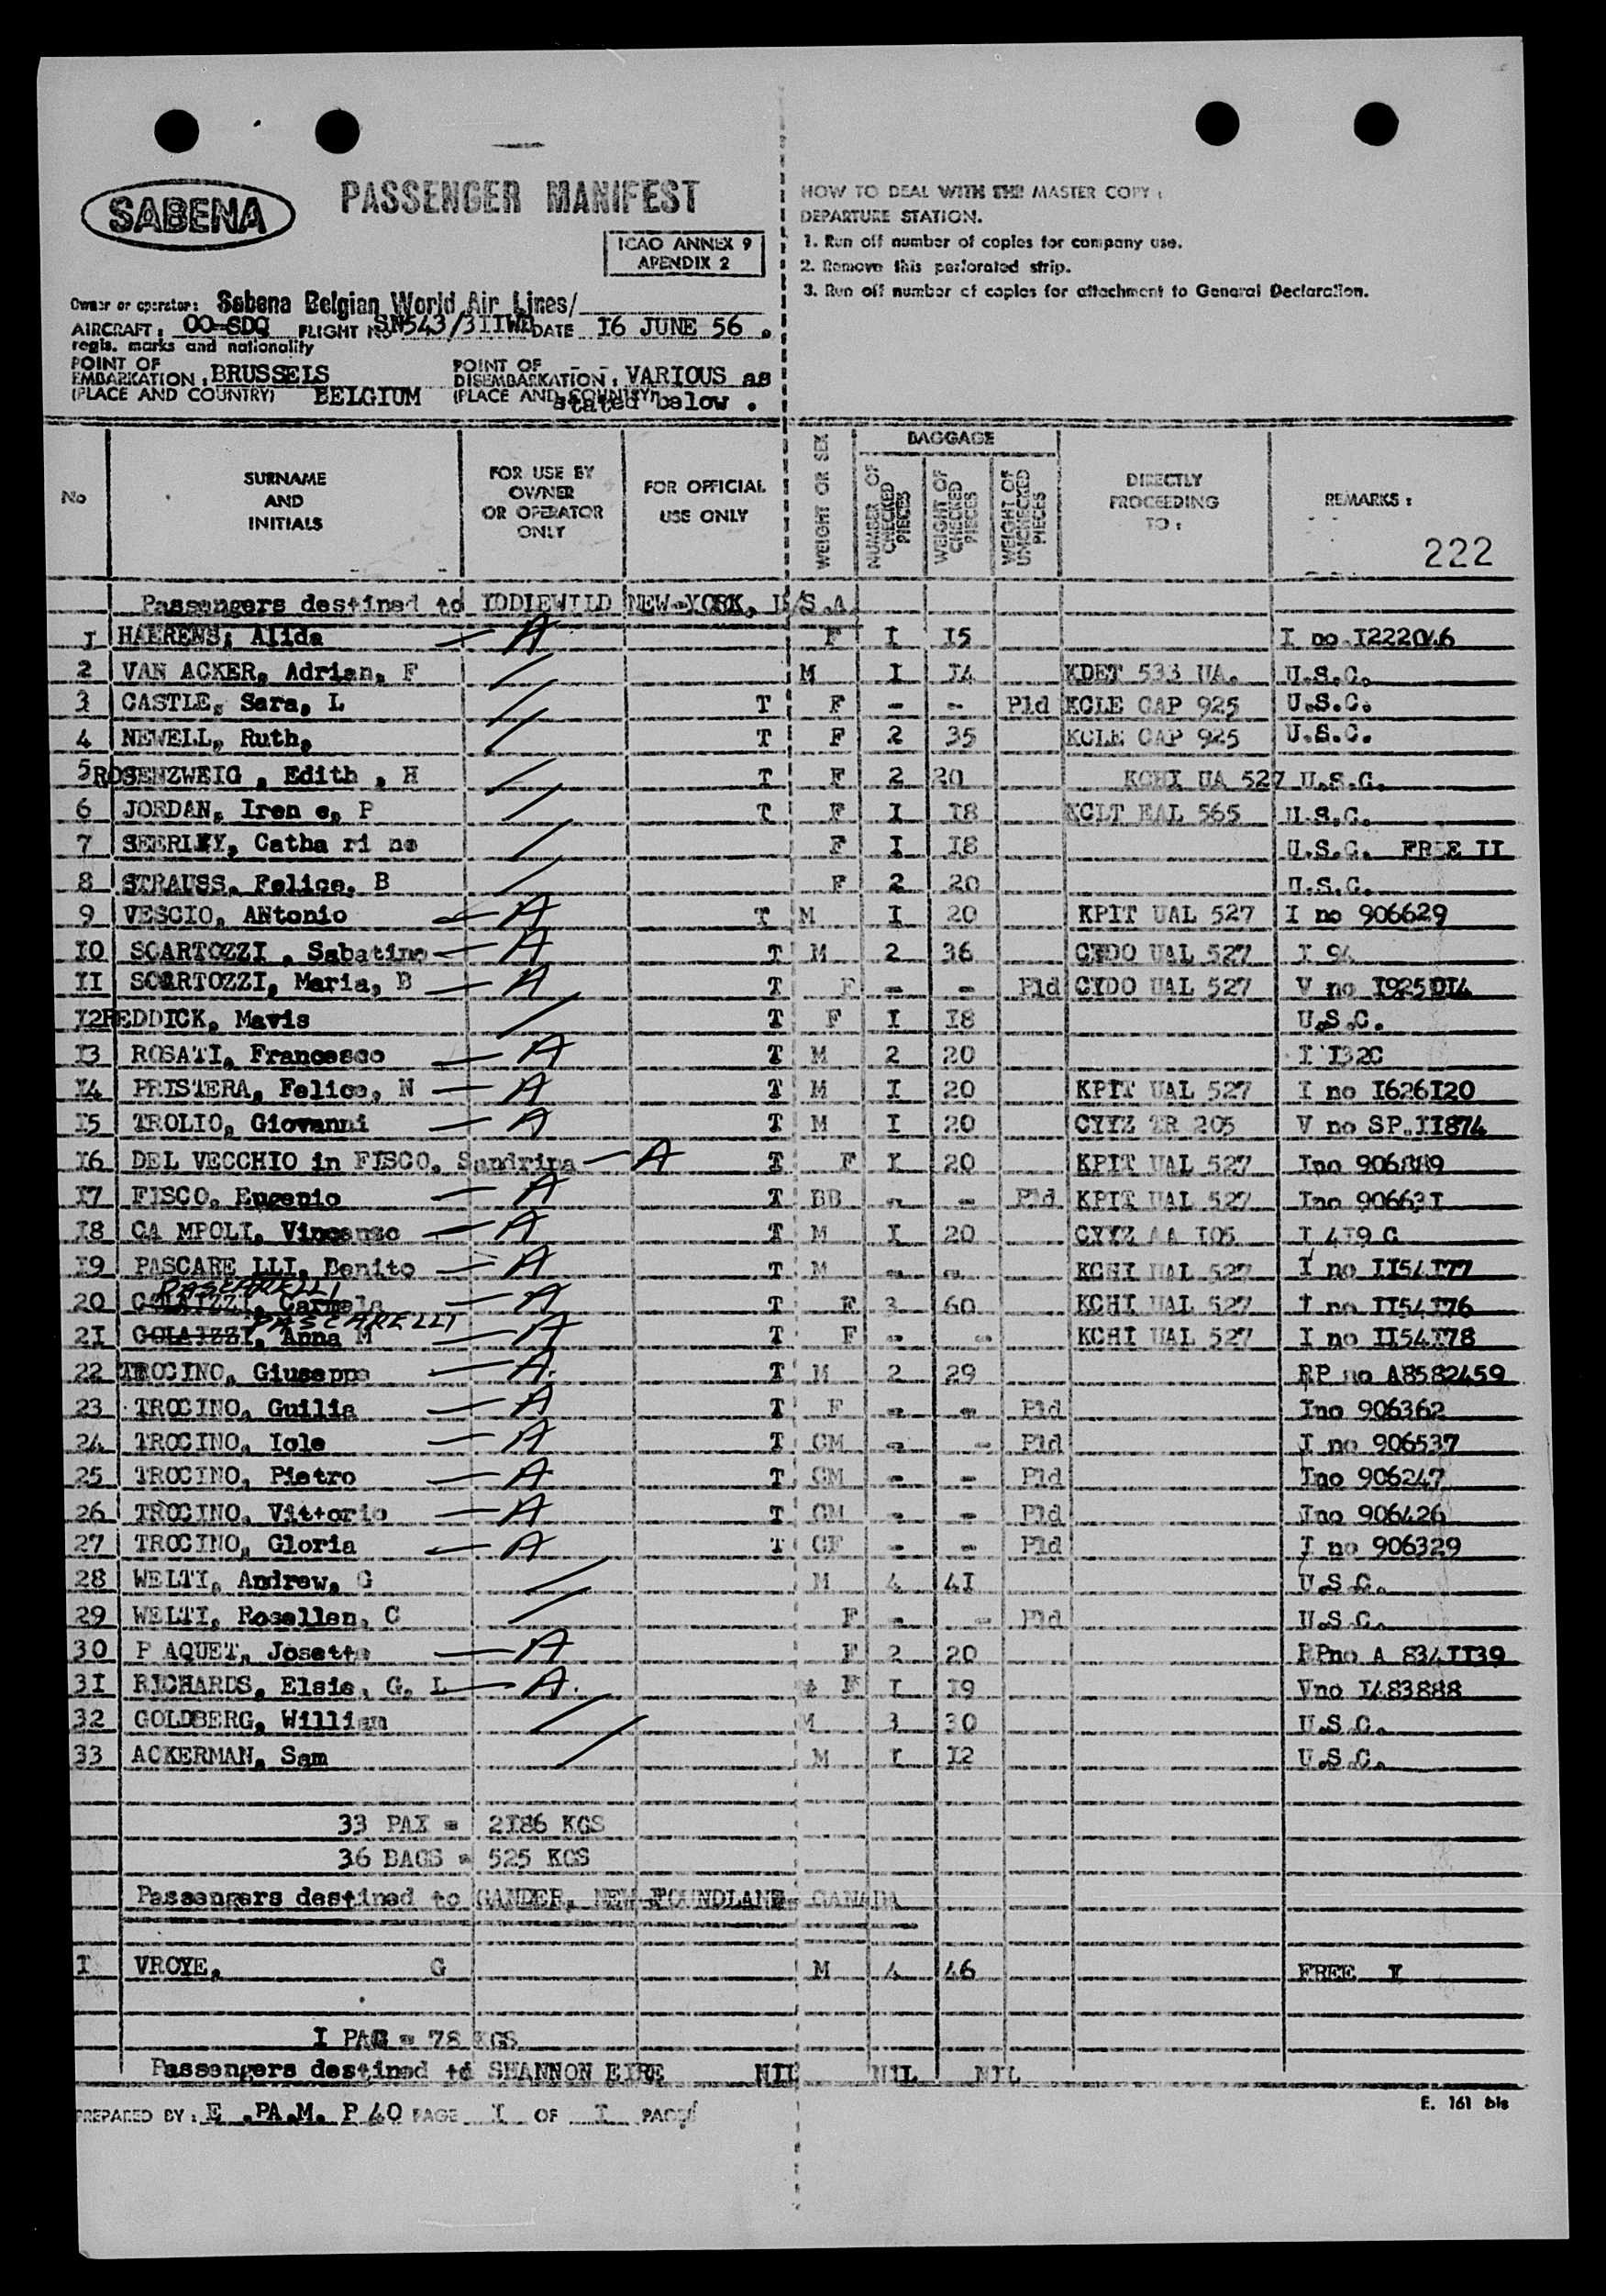 SABENA
PASSENGER MANIFEST
ICAO ANNEX 9
APENDIX 2
HOW TO DEAL WITH THE MASTER COPY :
DEPARTURE STATION.
1. Run off number of copies for company use.
2. Remove this perforated strip.
3. Run off number of copies for attachment to General Declaration.
Owner or operator: Sabena Belgian World Air Lines/
AIRCRAFT: OO-SDQ FLIGHT No SN543/3IIWD DATE I6 JUNE 56 .
regis. marks and nationality
POINT OF EMBARKATION: BRUSSELS POINT OF DISEMBARKATION: VARIOUS as
(PLACE AND COUNTRY) BELGIUM (PLACE AND COUNTRY) stated below .
No SURNAME AND INITIALS FOR USE BY OWNER OR OPERATOR ONLY FOR OFFICIAL USE ONLY WEIGHT OR SEX BAGGAGE NUMBER OF CHECKED PIECES WEIGHT OF CHECKED PIECES WEIGHT OF UNCHECKED PIECES DIRECTLY PROCEEDING TO : REMARKS :
222
Passengers destined to IDDIEWILD NEW-YORK, U/S.A
I HAERENS; Alida — A F I I5 I no I2220
2 VAN ACKER, Adrian, F M I I4 KDET 533 UA. U.S.C.
3 CASTLE, Sara, L T F - - Pld KCLE CAP 925 U.S.C.
4 NEWELL, Ruth, T F 2 35 KCLE CAP 925 U.S.C.
5 ROSENZWEIG , Edith , H T F 2 20 KCHI UA 527 U.S.C.
6 JORDAN, Iren e, P T F I I8 KCLT EAL 565 U.S.C.
7 SEERLEY, Catha ri ne F I I8 U.S.C. FREE II
8 STRAUSS, Felice, B F 2 20 U.S.C.
9 VESCIO, ANtonio — A T M I 20 KPIT UAL 527 I no 906629
IO SCARTOZZI , Sabatino — A T M 2 36 CYDO UAL 527 I 94
II SCARTOZZI, Maria, B — A T F - - Pld CYDO UAL 527 V no I925DI4
I2 REDDICK, Mavis T F I I8 U.S.C.
I3 ROSATI, Francesco — A T M 2 20 I I32C
I4 PRISTERA, Felice, N — A T M I 20 KPIT UAL 527 I no I626I20
I5 TROLIO, Giovanni — A T M I 20 CYYZ TR 205 V no SP.II874
I6 DEL VECCHIO in FISCO, Sandrina — A T F I 20 KPIT UAL 527 Ino 906889
I7 FISCO, Eugenio — A T BB - - Pld KPIT UAL 527 Ino 90663I
I8 CA MPOLI, Vincenzo — A T M I 20 CYYZ AA I05 I 4I9 C
I9 PASCARE LLI, Benito — A T M - - KCHI UAL 527 I no II54I77
PASCARELLI
20 COLAIZZI, Carmela — A T F 3 60 KCHI UAL 527 I no II54I76
PASCARELLI
2I COLAIZZI, Anna M — A T F - - KCHI UAL 527 I no II54I78
22 TROCINO, Giuseppe — A. T M 2 29 RP no A8582459
23 TROCINO, Guilia — A T F - - Pld Ino 906362
24 TROCINO, Iole — A T CM - - Pld I no 906537
25 TROCINO, Pietro — A T CM - - Pld Ino 906247
26 TROCINO, Vittorio — A T CM - - Pld Ino 906426
27 TROCINO, Gloria — A T CF - - Pld I no 906329
28 WELTI, Andrew, G M 4 4I U.S.C.
29 WELTI, Rosellen, C F - - Pld U.S.C.
30 P AQUET, Josette — A F 2 20 RPno A 834II39
3I RICHARDS, Elsie, G. L — A. F I I9 Vno I483888
32 GOLDBERG, William M 3 30 U.S.C.
33 ACKERMAN, Sam M I I2 U.S.C.
33 PAX = 2I86 KGS
36 BAGS = 525 KGS
Passengers destined to GANDER, NEW-FOUNDLAND- CANADA
I VROYE, G M 4 46 FREE I
I PAG = 78 KGS
Passengers destined to SHANNON EIRE NIL NIL NIL
PREPARED BY: E .PA.M. P 40 PAGE I OF I PAGE
E. 161 bis